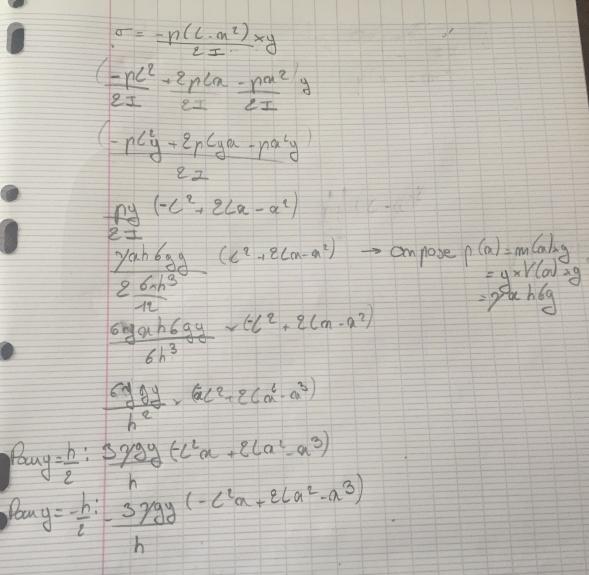 σ = -p(L-a²)/2I × y
(-pL²/2I + 2pLa/2I - pa²/2I) y
(-pL²y + 2pLya - pa²y)/2I
py/2I (-L² + 2La - a²)
γahbgy/(2 bh³/12) (L² + 2La - a²) → on pose p(a) = m(a)×g
= γ×V(a)×g
= γahbg
6γahbgy/bh³ × (-L² + 2La - a²)
6γgy/h² × (-L² + 2La² - a³)
Pour y = h/2 : 3γgy/h (-L²a + 2La² - a³)
Pour y = -h/2 : -3γgy/h (-L²a + 2La² - a³)